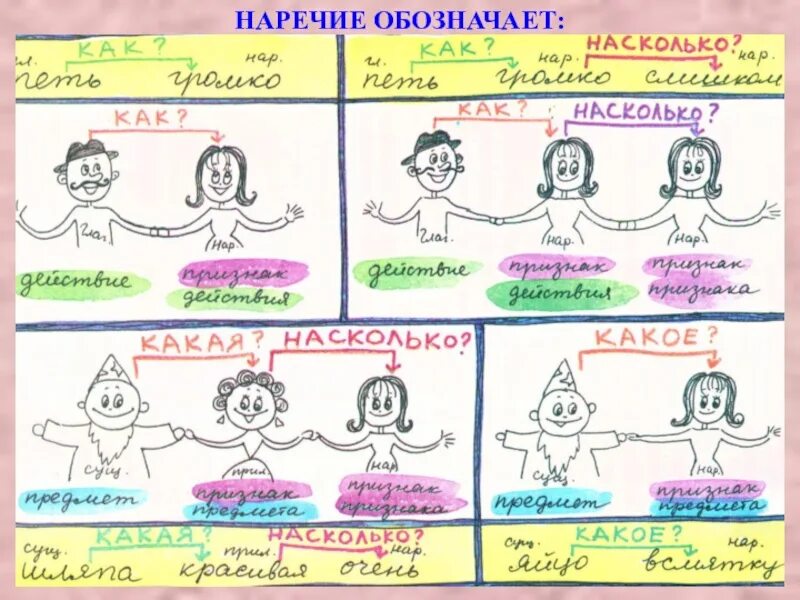 НАРЕЧИЕ ОБОЗНАЧАЕТ:
КАК?
гл. нар.
петь громко
КАК? НАСКОЛЬКО?
гл. нар. нар.
петь громко слишком
КАК?
глаг. нар.
действие
признак
действия
КАК? НАСКОЛЬКО?
глаг. нар. нар.
действие
признак
действия
признак
признака
КАКАЯ? НАСКОЛЬКО?
сущ. прил. нар.
предмет
признак
предмета
признак
признака
КАКОЕ?
сущ. нар.
предмет
признак
предмета
КАКАЯ? НАСКОЛЬКО?
сущ. прил. нар.
шляпа красивая очень
КАКОЕ?
сущ. нар.
яйцо всмятку